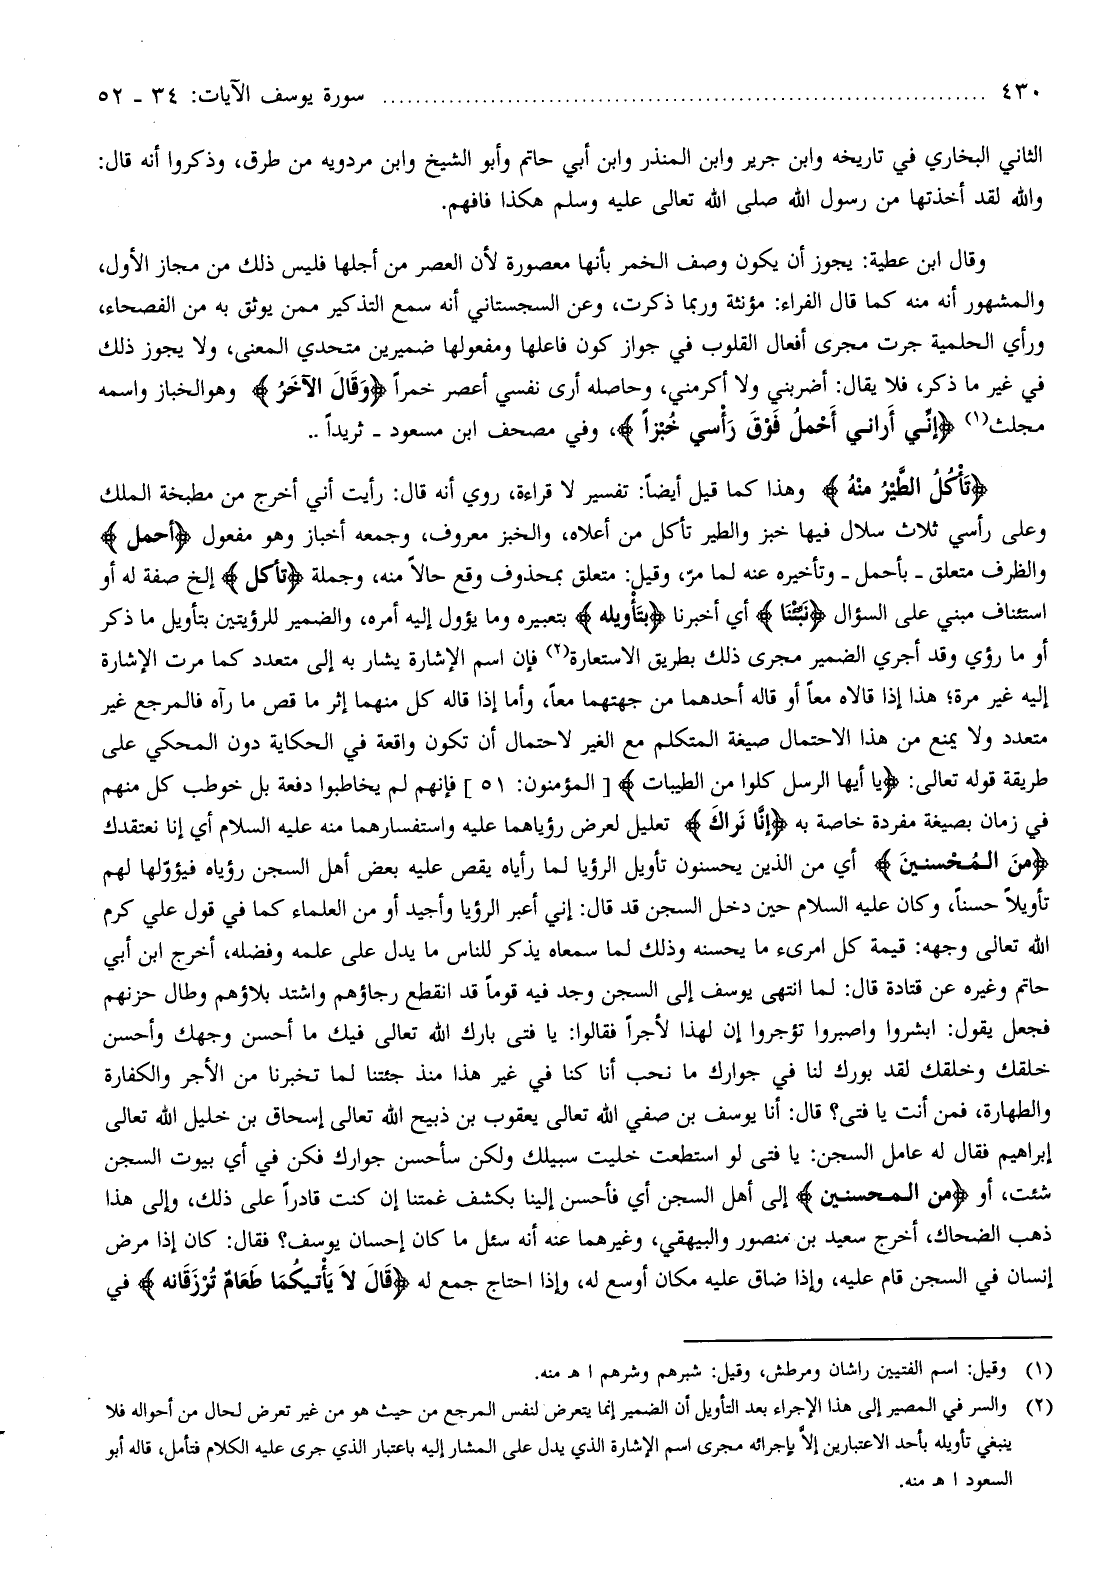 ٤٣٠ ........................................................................ سورة يوسف الآيات: ٣٤ ـ ٥٢
الثاني البخاري في تاريخه وابن جرير وابن المنذر وابن أبي حاتم وأبو الشيخ وابن مردويه من طرق، وذكروا أنه قال:
والله لقد أخذتها من رسول الله صلى الله تعالى عليه وسلم هكذا فافهم.
وقال ابن عطية: يجوز أن يكون وصف الخمر بأنها معصورة لأن العصر من أجلها فليس ذلك من مجاز الأول،
والمشهور أنه منه كما قال الفراء: مؤنثة وربما ذكرت، وعن السجستاني أنه سمع التذكير ممن يوثق به من الفصحاء،
ورأي الحلمية جرت مجرى أفعال القلوب في جواز كون فاعلها ومفعولها ضميرين متحدي المعنى، ولا يجوز ذلك
في غير ما ذكر، فلا يقال: أضربني ولا أكرمني، وحاصله أرى نفسي أعصر خمراً ﴿وَقَالَ الآخَرُ﴾ وهوالخباز واسمه
مجلث(١) ﴿إنِّي أَراني أَحْملُ فَوْقَ رَأْسي خُبْزاً﴾، وفي مصحف ابن مسعود ـ ثريداً ..
﴿تَأْكُلُ الطَّيْرُ منْهُ﴾ وهذا كما قيل أيضاً: تفسير لا قراءة، روي أنه قال: رأيت أني أخرج من مطبخة الملك
وعلى رأسي ثلاث سلال فيها خبز والطير تأكل من أعلاه، والخبز معروف، وجمعه أخباز وهو مفعول ﴿أحمل﴾
والظرف متعلق ـ بأحمل ـ وتأخيره عنه لما مرّ، وقيل: متعلق بمحذوف وقع حالاً منه، وجملة ﴿تأكل﴾ إلخ صفة له أو
استئناف مبني على السؤال ﴿نَبِّئْنَا﴾ أي أخبرنا ﴿بتَأْويله﴾ بتعبيره وما يؤول إليه أمره، والضمير للرؤيتين بتأويل ما ذكر
أو ما رؤي وقد أجري الضمير مجرى ذلك بطريق الاستعارة(٢) فإن اسم الإشارة يشار به إلى متعدد كما مرت الإشارة
إليه غير مرة؛ هذا إذا قالاه معاً أو قاله أحدهما من جهتهما معاً، وأما إذا قاله كل منهما إثر ما قص ما رآه فالمرجع غير
متعدد ولا يمنع من هذا الاحتمال صيغة المتكلم مع الغير لاحتمال أن تكون واقعة في الحكاية دون المحكي على
طريقة قوله تعالى: ﴿يا أيها الرسل كلوا من الطيبات﴾ [ المؤمنون: ٥١ ] فإنهم لم يخاطبوا دفعة بل خوطب كل منهم
في زمان بصيغة مفردة خاصة به ﴿إنَّا نَراكَ﴾ تعليل لعرض رؤياهما عليه واستفسارهما منه عليه السلام أي إنا نعتقدك
﴿منَ المُحْسنينَ﴾ أي من الذين يحسنون تأويل الرؤيا لما رأياه يقص عليه بعض أهل السجن رؤياه فيؤوّلها لهم
تأويلاً حسناً، وكان عليه السلام حين دخل السجن قد قال: إني أعبر الرؤيا وأجيد أو من العلماء كما في قول علي كرم
الله تعالى وجهه: قيمة كل امرىء ما يحسنه وذلك لما سمعاه يذكر للناس ما يدل على علمه وفضله، أخرج ابن أبي
حاتم وغيره عن قتادة قال: لما انتهى يوسف إلى السجن وجد فيه قوماً قد انقطع رجاؤهم واشتد بلاؤهم وطال حزنهم
فجعل يقول: ابشروا واصبروا تؤجروا إن لهذا لأجراً فقالوا: يا فتى بارك الله تعالى فيك ما أحسن وجهك وأحسن
خلقك وخلقك لقد بورك لنا في جوارك ما نحب أنا كنا في غير هذا منذ جئتنا لما تخبرنا من الأجر والكفارة
والطهارة، فمن أنت يا فتى؟ قال: أنا يوسف بن صفي الله تعالى يعقوب بن ذبيح الله تعالى إسحاق بن خليل الله تعالى
إبراهيم فقال له عامل السجن: يا فتى لو استطعت خليت سبيلك ولكن سأحسن جوارك فكن في أي بيوت السجن
شئت، أو ﴿من المحسنين﴾ إلى أهل السجن أي فأحسن إلينا بكشف غمتنا إن كنت قادراً على ذلك، وإلى هذا
ذهب الضحاك، أخرج سعيد بن منصور والبيهقي، وغيرهما عنه أنه سئل ما كان إحسان يوسف؟ فقال: كان إذا مرض
إنسان في السجن قام عليه، وإذا ضاق عليه مكان أوسع له، وإذا احتاج جمع له ﴿قَالَ لاَ يَأْتيكُمَا طَعَامٌ تُرْزَقَانه﴾ في
(١) وقيل: اسم الفتيين راشان ومرطش، وقيل: شبرهم وشرهم ا هـ منه.
(٢) والسر في المصير إلى هذا الإجراء بعد التأويل أن الضمير إنما يتعرض لنفس المرجع من حيث هو من غير تعرض لحال من أحواله فلا
ينبغي تأويله بأحد الاعتبارين إلاَّ بإجرائه مجرى اسم الإشارة الذي يدل على المشار إليه باعتبار الذي جرى عليه الكلام فتأمل، قاله أبو
السعود ا هـ منه.